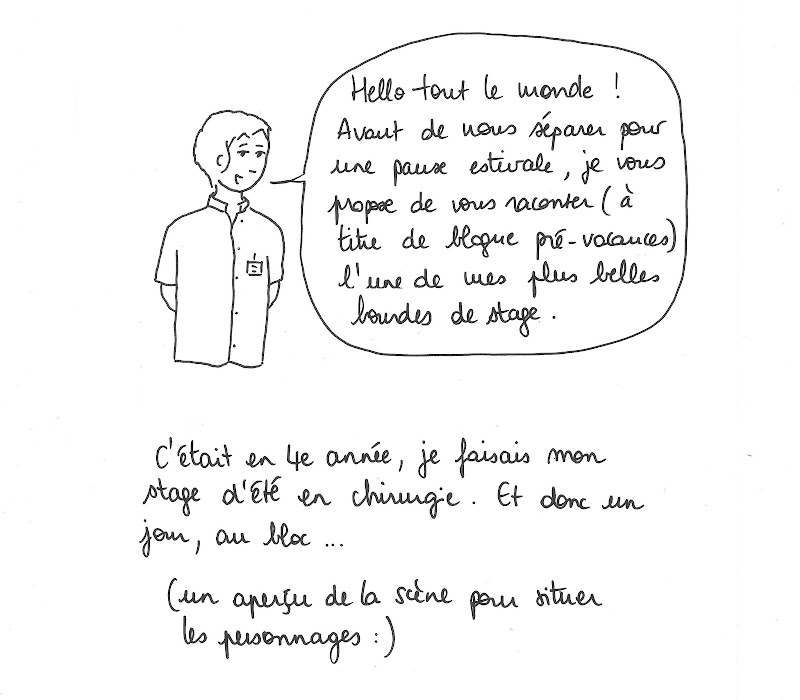 Hello tout le monde !
Avant de nous séparer pour
une pause estivale, je vous
propose de vous raconter (à
titre de blogue pré-vacances)
l'une de mes plus belles
bourdes de stage.
C'était en 4e année, je faisais mon
stage d'été en chirurgie. Et donc un
jour, au bloc ...
(un aperçu de la scène pour situer
les personnages :)